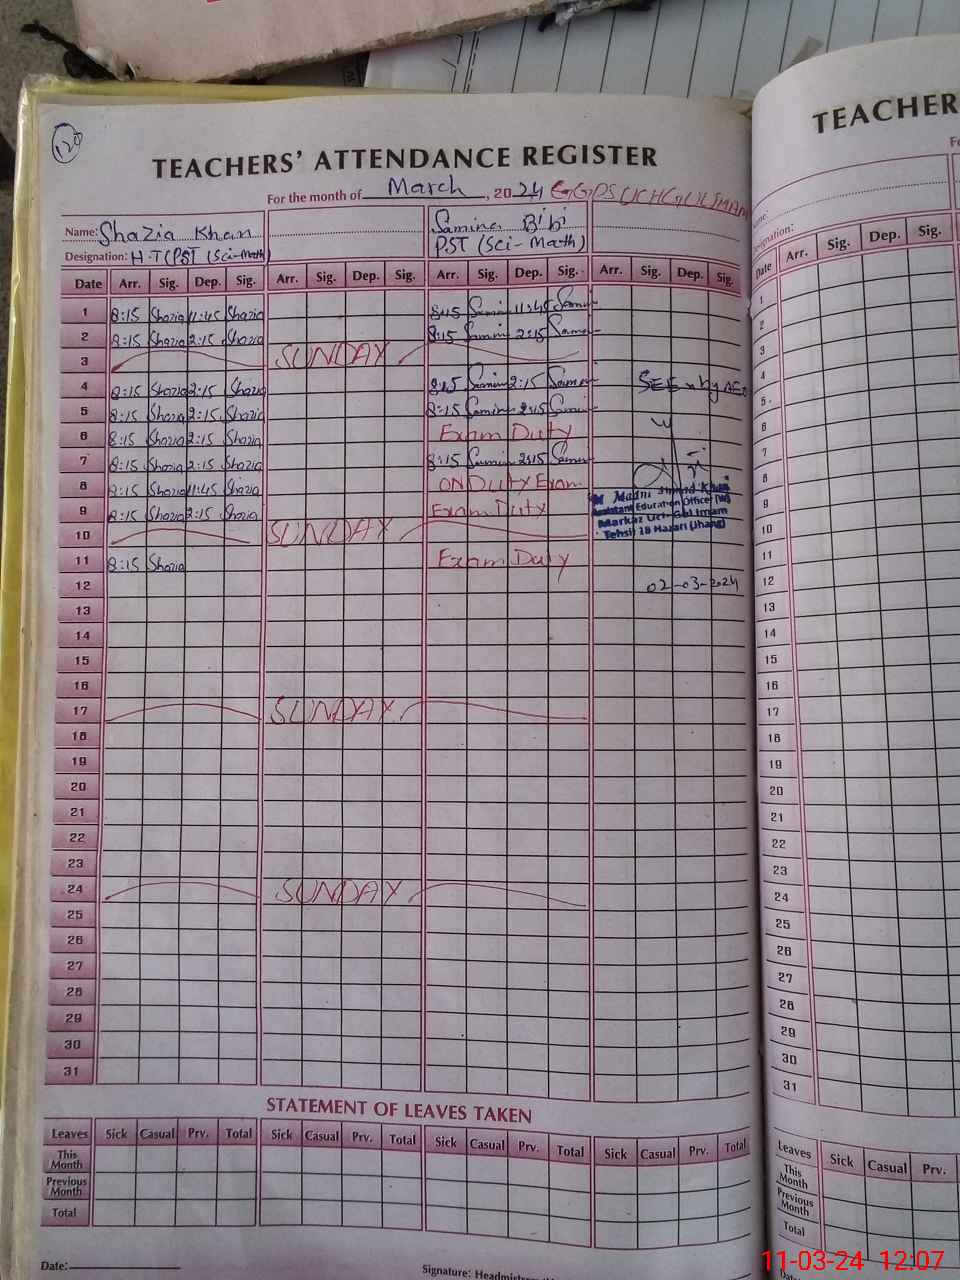 120
TEACHERS' ATTENDANCE REGISTER
For the month of March, 2024
Name: Shazia Khan Samina Bibi
Designation: H.T(PST (Sci-Math) PST (Sci-Math)
Date Arr. Sig. Dep. Sig. Arr. Sig. Dep. Sig. Arr. Sig. Dep. Sig. Arr. Sig. Dep. Sig.
1 8:15 Shazia 11:45 Shazia 8:15 Samin 11:45 Samin
2 8:15 Shazia 2:15 Shazia 8:15 Samin 2:15 Samin
3 SUNDAY
4 8:15 Shazia 2:15 Shazia 8:15 Samin 2:15 Samin SEEN by AEO
5 8:15 Shazia 2:15 Shazia 8:15 Samin 2:15 Samin
6 8:15 Shazia 2:15 Shazia Exam Duty
7 8:15 Shazia 2:15 Shazia 8:15 Samin 2:15 Samin
8 8:15 Shazia 11:45 Shazia ON Duty Exam
9 8:15 Shazia 2:15 Shazia Exam Duty
Assistant Education Officer (W)
Markaz
Tehsil 18 Hazari (Jhang)
10 SUNDAY
11 8:15 Shazia Exam Duty
12 02-03-2024
13
14
15
16
17 SUNDAY
18
19
20
21
22
23
24 SUNDAY
25
26
27
28
29
30
31
STATEMENT OF LEAVES TAKEN
Leaves Sick Casual Prv. Total Sick Casual Prv. Total Sick Casual Prv. Total Sick Casual Prv. Total
This Month
Previous Month
Total
Date:
Signature: Headmistress
TEACHER
Date Arr. Sig. Dep. Sig.
1
2
3
4
5
6
7
8
9
10
11
12
13
14
15
16
17
18
19
20
21
22
23
24
25
26
27
28
29
30
31
Leaves Sick Casual Prv.
This Month
Previous Month
Total
11-03-24 12:07